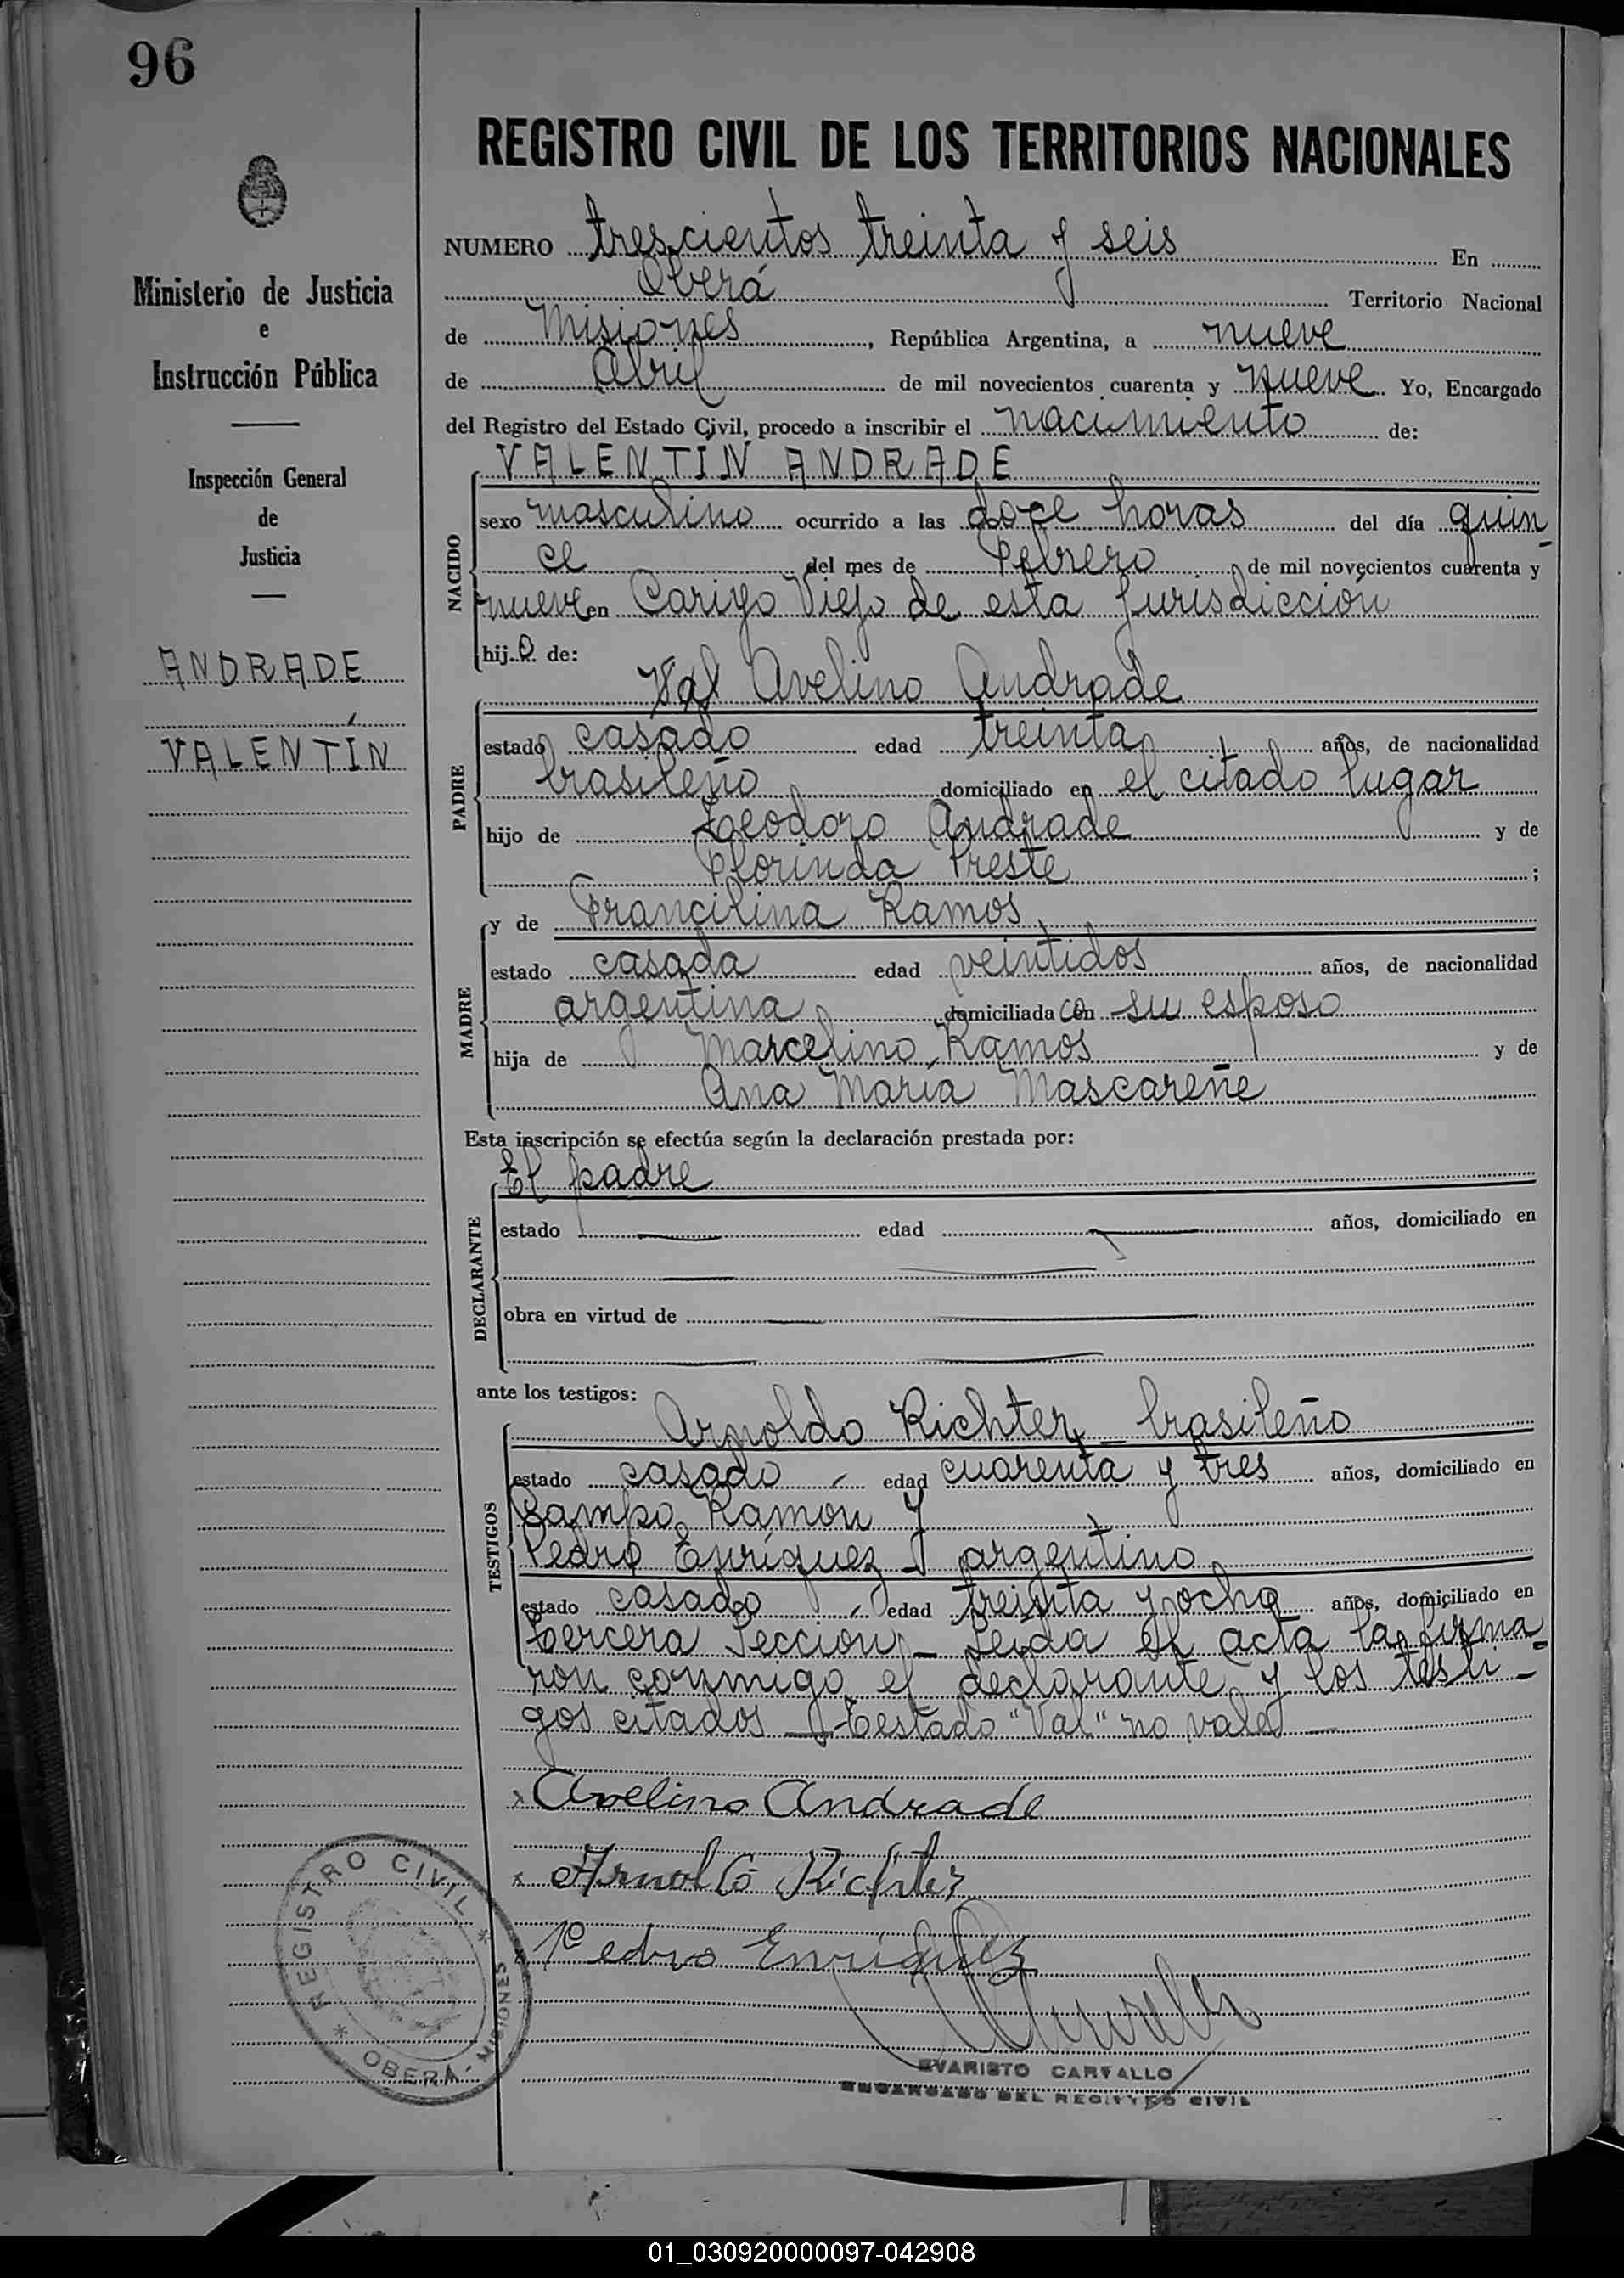 96
REGISTRO CIVIL DE LOS TERRITORIOS NACIONALES
Ministerio de Justicia
e
Instrucción Pública
Inspección General
de
Justicia
ANDRADE
VALENTÍN
NUMERO trescientos treinta y seis En
Oberá Territorio Nacional
de Misiones, República Argentina, a nueve
de Abril de mil novecientos cuarenta y nueve Yo, Encargado
del Registro del Estado Civil, procedo a inscribir el nacimiento de:
NACIDO
VALENTÍN ANDRADE
sexo masculino ocurrido a las doce horas del día quin-
ce del mes de Febrero de mil novecientos cuarenta y
nueve en Viejo de esta Jurisdicción
hijo de:
PADRE
Val Avelino Andrade
estado casado edad treinta años, de nacionalidad
brasileño domiciliado en el citado lugar
hijo de Leodoro Andrade y de
Florinda Preste;
MADRE
y de Francilina Ramos
estado casada edad veintidos años, de nacionalidad
argentina domiciliada con su esposo
hija de Marcelino Ramos y de
Ana María Mascareñe
Esta inscripción se efectúa según la declaración prestada por:
DECLARANTE
El padre
estado edad años, domiciliado en
obra en virtud de
ante los testigos:
TESTIGOS
Arnoldo Richter - brasileño
estado casado edad cuarenta y tres años, domiciliado en
Campo Ramon y
Pedro Enríquez - argentino
estado casado edad treinta y ocho años, domiciliado en
tercera Sección - Leida el acta la firma-
ron conmigo el declarante y los testi-
gos citados - Testado "Val" no vale -
Avelino Andrade
Arnoldo Richter
Pedro Enriquez
EVARISTO CARVALLO
ENCARGADO DEL REGISTRO CIVIL
REGISTRO CIVIL
OBERÁ - MISIONES
01_030920000097-042908